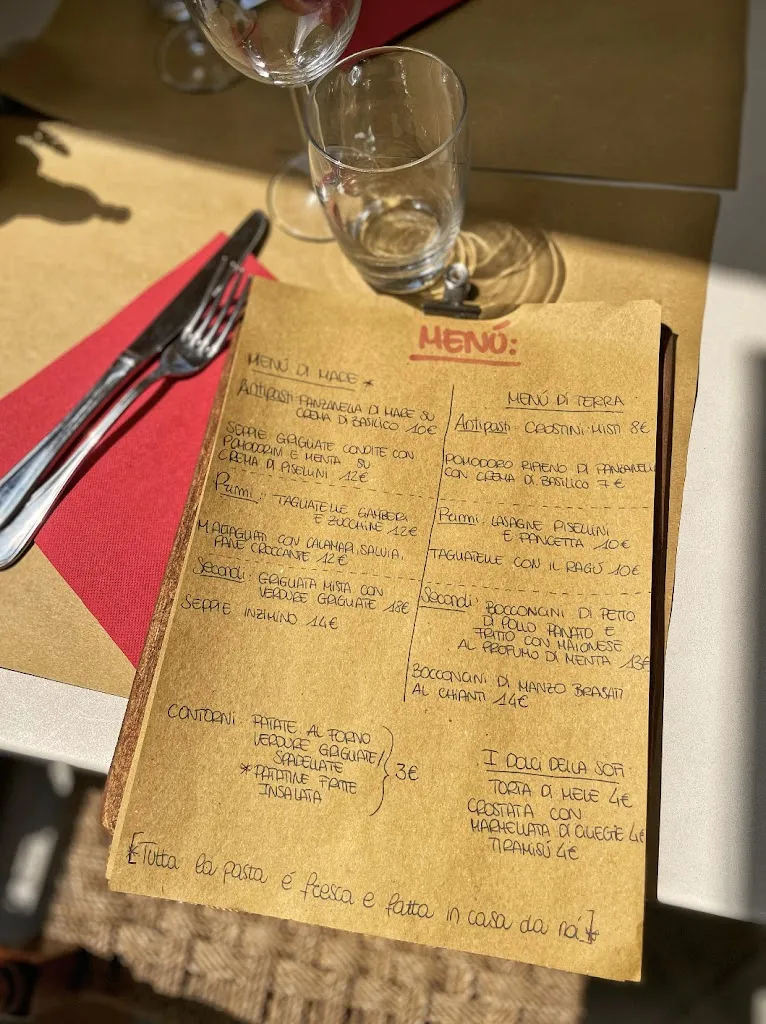 MENÚ:
MENÚ DI MARE *
Antipasti PANZANELLA DI MARE SU
CREMA DI BASILICO 10€
SEPPIE GRIGLIATE CONDITE CON
POMODORINI E MENTA SU
CREMA DI PISELLINI 12€
Primi: TAGLIATELLE GAMBERI
E ZUCCHINE 12€
MALTAGLIATI CON CALAMARI, SALVIA,
PANE CROCCANTE 12€
Secondi: GRIGLIATA MISTA CON
VERDURE GRIGLIATE 18€
SEPPIE INZIMINO 14€
MENÚ DI TERRA
Antipasti CROSTINI MISTI 8€
POMODORO RIPIENO DI PANZANELLA
CON CREMA DI BASILICO 7€
Primi: LASAGNE PISELLINI
E PANCETTA 10€
TAGLIATELLE CON IL RAGÚ 10€
Secondi: BOCCONCINI DI PETTO
DI POLLO PANATO E
FRITTO CON MAIONESE
AL PROFUMO DI MENTA 13€
BOCCONCINI DI MANZO BRASATI
AL CHIANTI 14€
CONTORNI: PATATE AL FORNO
VERDURE GRIGLIATE/
SPADELLATE
*PATATINE FRITTE
INSALATA
3€
I DOLCI DELLA SOFI
TORTA DI MELE 4€
CROSTATA CON
MARMELLATA DI CILIEGIE 4€
TIRAMISÚ 4€
[*Tutta la pasta é fresca e fatta in casa da noi*]